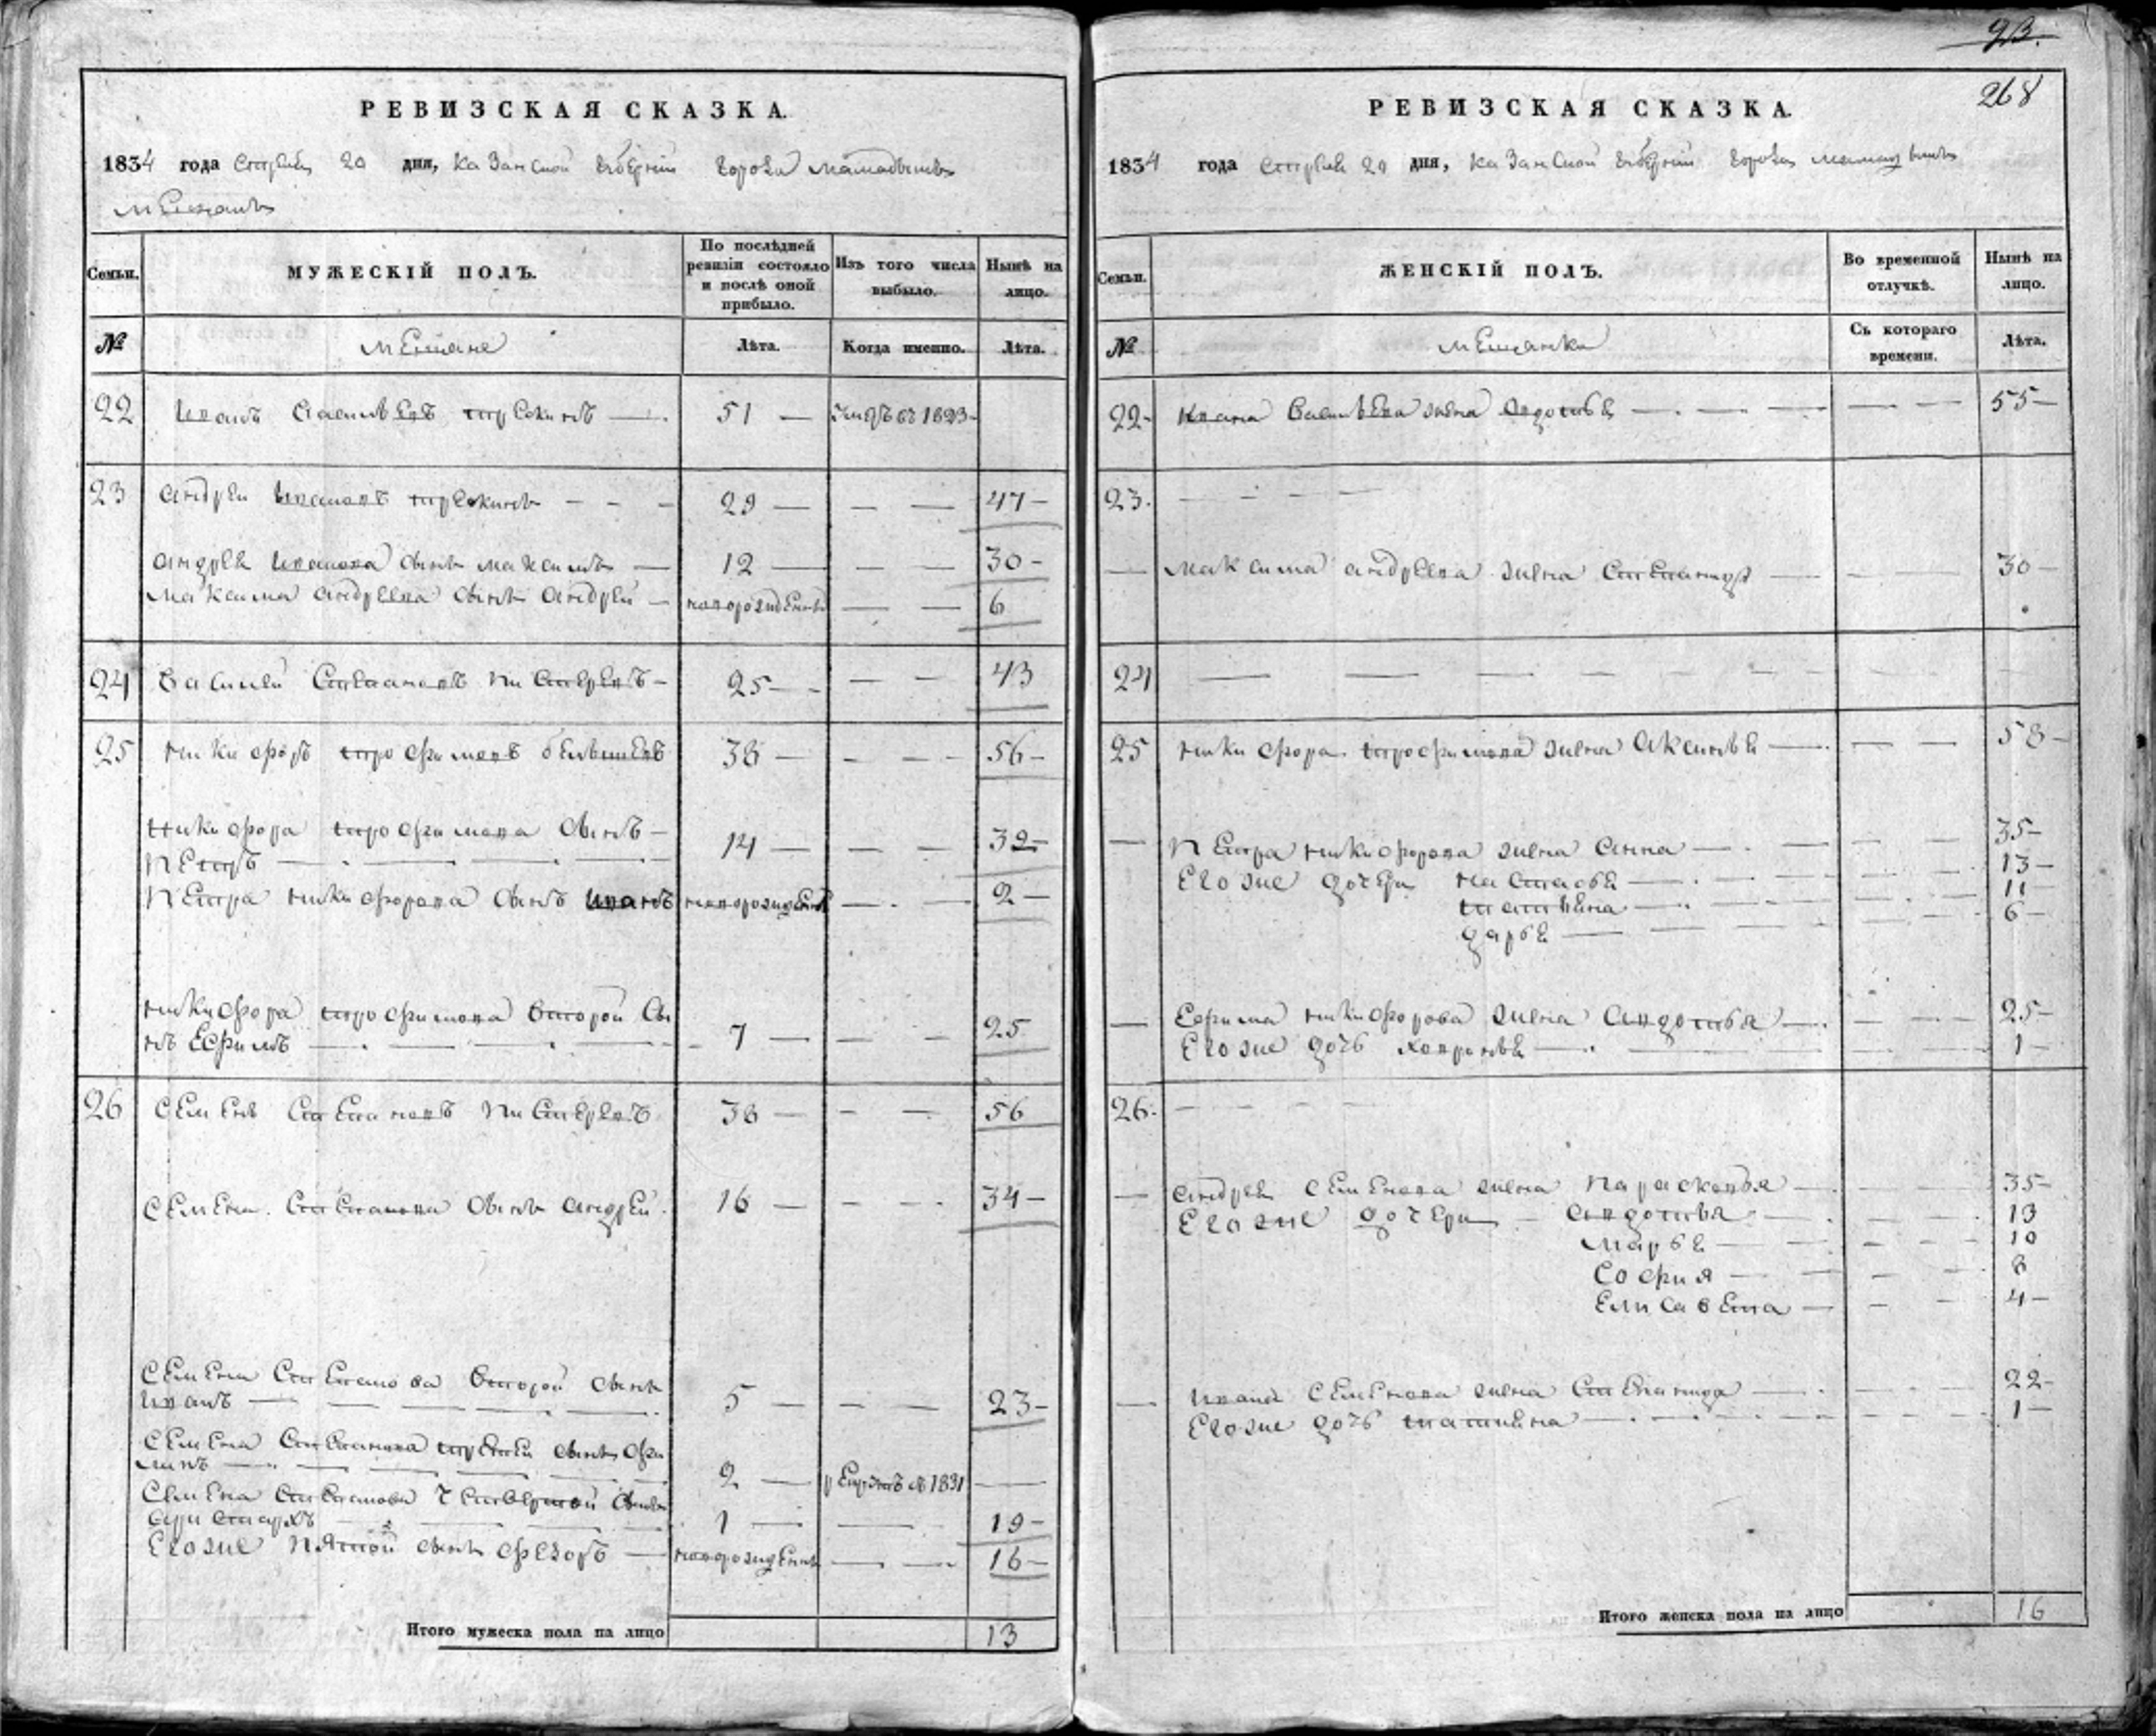 РЕВИЗСКАЯ СКАЗКА.
1834 года Апреля 20 дня, Казанской губернии города Мамадыша
Мещанъ
Семьи.
МУЖЕСКІЙ ПОЛЪ.
По послѣдней ревизіи состояло и послѣ оной прибыло.
Изъ того числа выбыло.
Нынѣ на лицо.
№
Мещане
Лѣта.
Когда именно.
Лѣта.
22 Иванъ Васильевъ 51 — 1823
23 Андрей Ивановъ 29 — — — 47 —
Андрея Иванова сынъ Максимъ — 12 — — — 30 —
Максима Андреева сынъ Андрей — новорожденъ — — 6
24 Василей Степановъ Пистеревъ — 25 — — — 43
25 Никифоръ Трофимовъ 38 — — — 56 —
Никифора Трофимова сынъ —
Петръ — 14 — — — 32 —
Петра Никифорова сынъ Иванъ новорожденъ — — 2 —
Никифора Трофимова второй сы
нъ Ефимъ — 7 — — — 25
26 Семенъ Степановъ Пистеревъ 38 — — — 56
Семена Степанова сынъ Андрей 16 — — — 34 —
Семена Степанова второй сынъ
Иванъ — 5 — — — 23 —
Семена Степанова третей сынъ Фи
липъ — 2 — 1831 —
Семена Степанова четвертой сынъ
Аристархъ 1 — — 19 —
Егоже пятой сынъ Федоръ — новорожденъ — — 16 —
Итого мужеска пола на лицо 13
93.
268
РЕВИЗСКАЯ СКАЗКА.
1834 года Апреля 20 дня, Казанской губернии города Мамадыша
Семьи.
ЖЕНСКІЙ ПОЛЪ.
Во временной отлучкѣ.
Нынѣ на лицо.
№
Мещанка
Съ котораго времени.
Лѣта.
22 Ивана Васильева жена Авдотья — — — 55 —
23. — — —
— Максима Андреева жена Степанида — — 30 —
24 — — —
25 Никифора Трофимова жена Аксинья — — — 58 —
— Петра Никифорова жена Анна — — — 35 —
Егоже дочери Настасья — — — 13 —
Татьяна — — — 11 —
Дарья — — — 6 —
— Ефима Никифорова жена Авдотья — — — 25 —
Егоже дочь — — — 1 —
26. — — —
— Андрея Семенова жена Парасковья — — — 35 —
Егоже дочери — Авдотья — — — 13
Марья — — — 10
София — — — 8
Елисавета — — — 4 —
— Ивана Семенова жена Степанида — — — 22 —
Егоже дочь Татьяна — — — 1 —
Итого женска пола на лицо 16